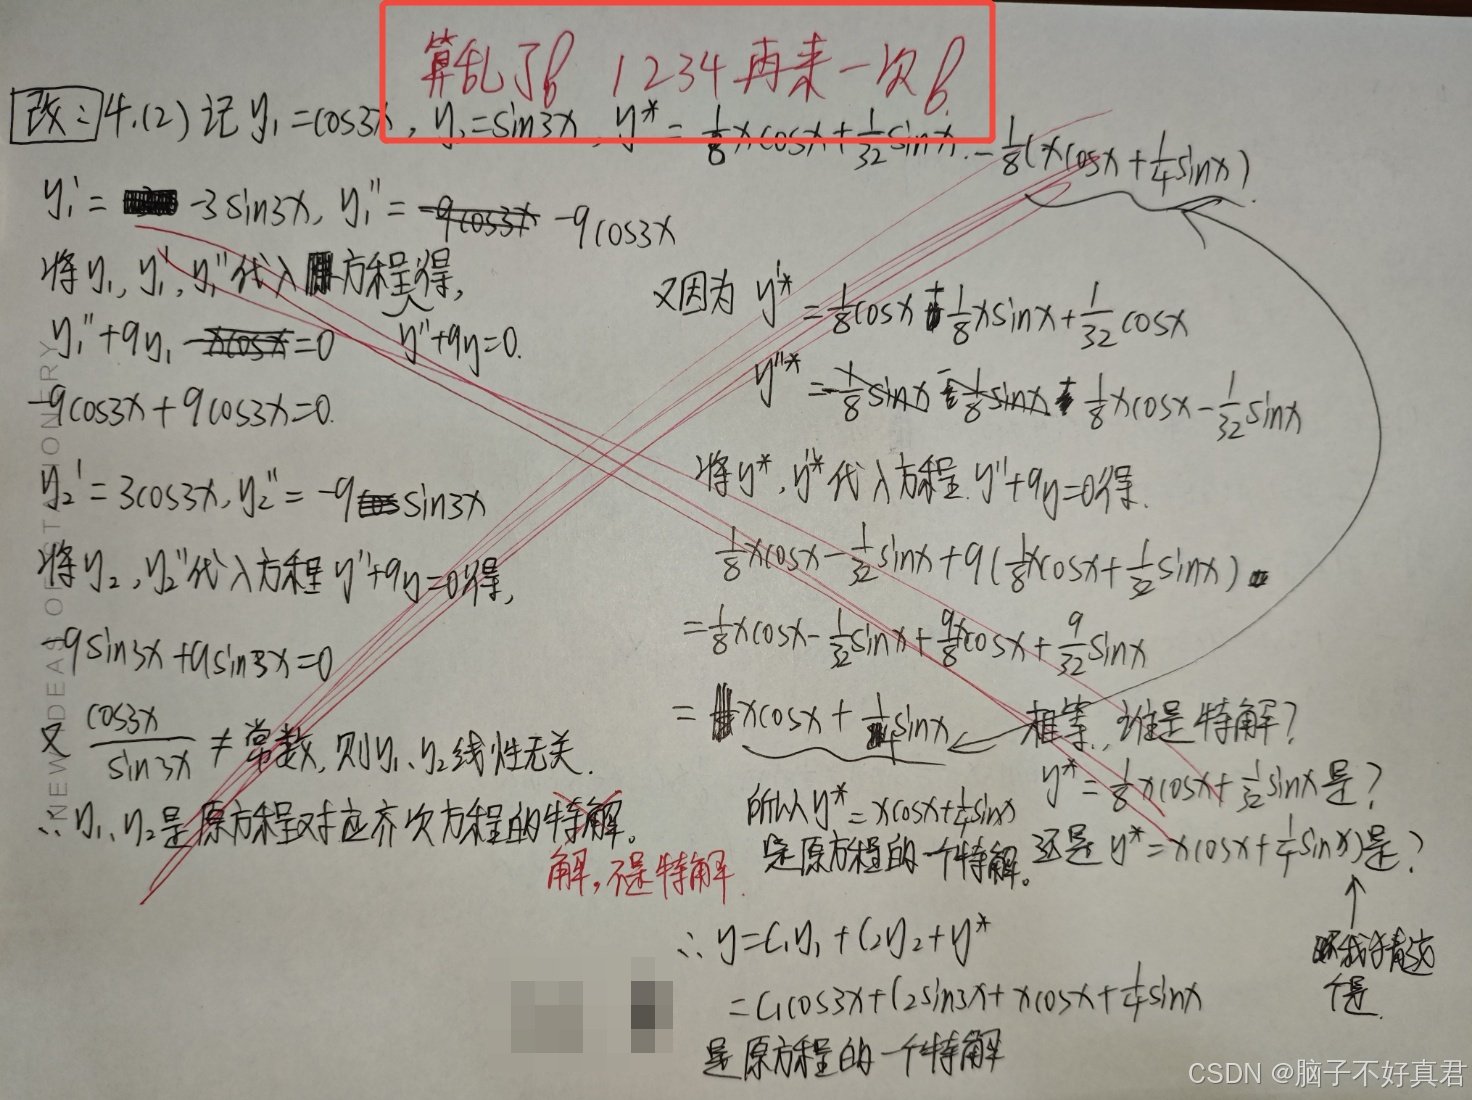 算乱了 1234再来一次
改: 4.(2) 记 y₁=cos3x, y₂=sin3x, y*=1/8xcosx+1/32sinx. =1/8(xcosx+1/4sinx).
y₁'= -3sin3x, y₁''= -9cos3x -9cos3x
将y₁, y₁', y₁''代入原方程得,
y₁''+9y₁-xcosx=0 y''+9y=0.
-9cos3x+9cos3x=0.
y₂'=3cos3x, y₂''=-9sin3x
将y₂, y₂''代入方程y''+9y=0得,
-9sin3x+9sin3x=0
又 cos3x/sin3x ≠ 常数, 则y₁、y₂线性无关.
∴ y₁、y₂是原方程对应齐次方程的特解。
解, 不是特解.
又因为 y'*=1/8cosx+1/8xsinx+1/32cosx
y''*=-1/8sinx-1/8sinx+1/8xcosx-1/32sinx
将y*, y''*代入方程y''+9y=0得.
1/8xcosx-1/32sinx+9(1/8xcosx+1/32sinx)
=1/8xcosx-1/32sinx+9x/8cosx+9/32sinx
=xcosx+1/4sinx
相等, 谁是特解?
y*=1/8xcosx+1/32sinx是?
还是y*=xcosx+1/4sinx)是?
所以y*=xcosx+1/4sinx
是原方程的一个特解。
∴ y=C₁y₁+C₂y₂+y*
=C₁cos3x+C₂sin3x+xcosx+1/4sinx
是原方程的一个特解
个是.
NEW IDEAS OF STATIONERY
CSDN @脑子不好真君